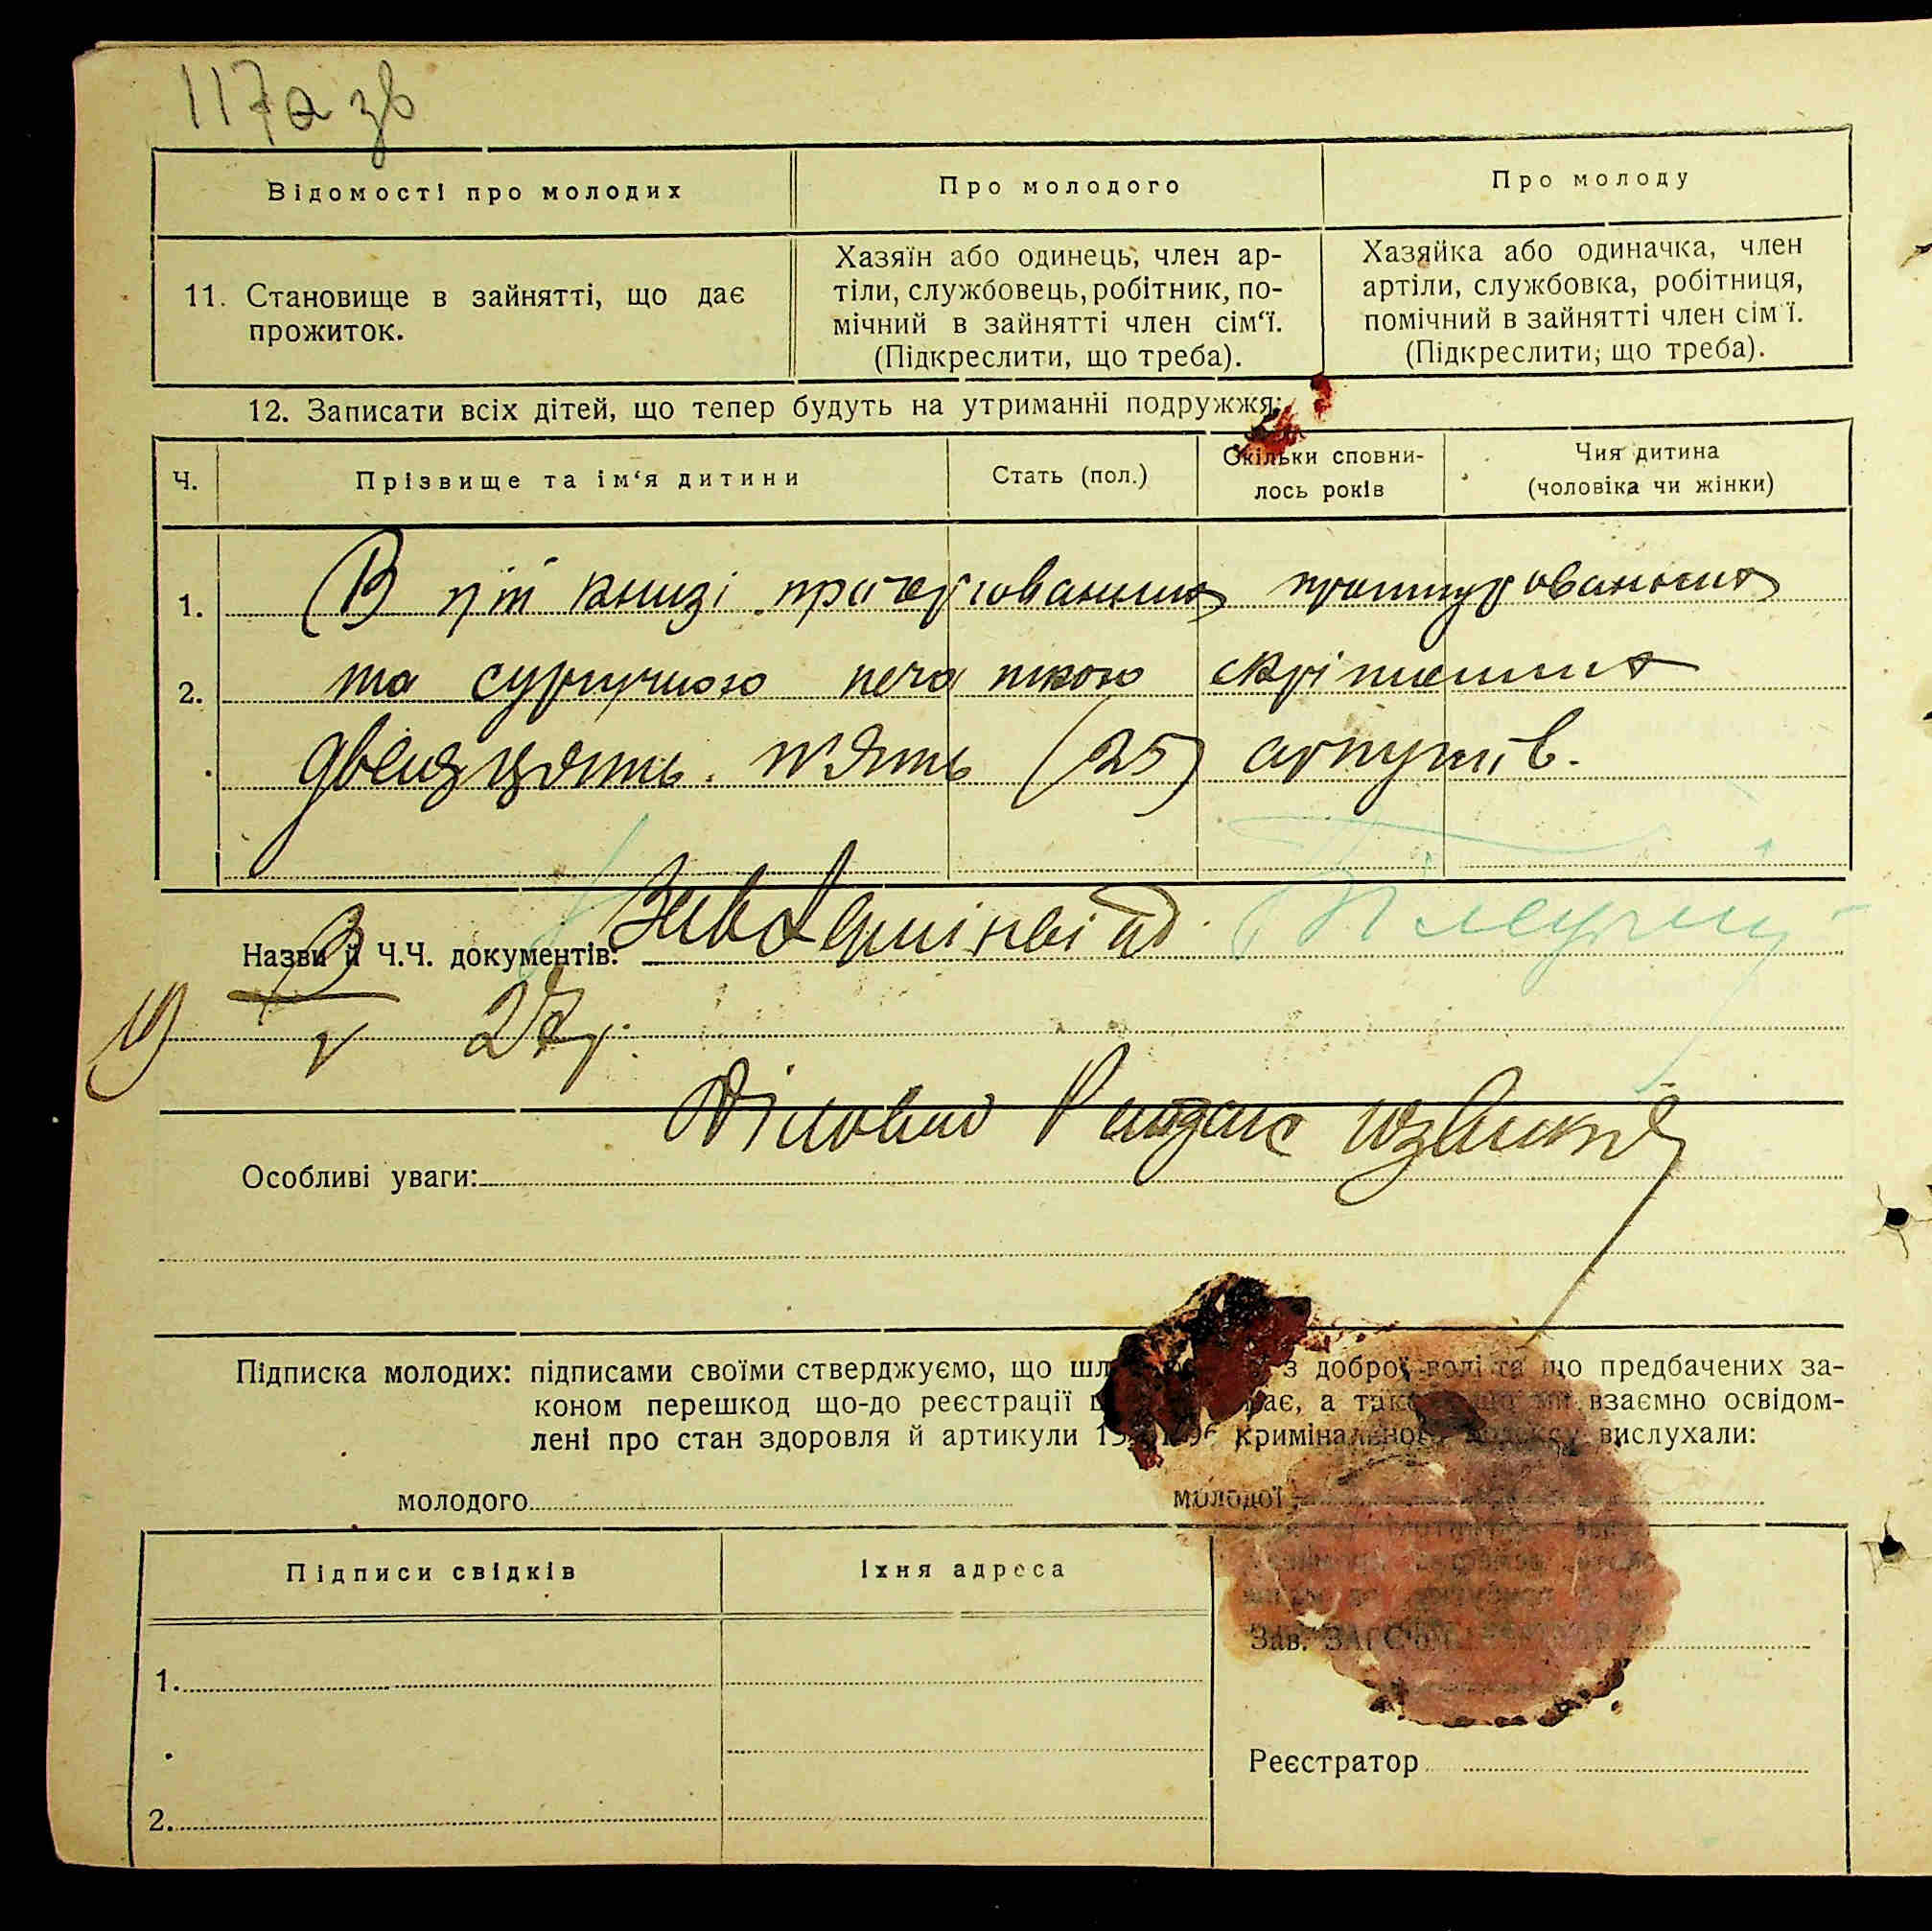 117а зв
Відомості про молодих
Про молодого
Про молоду
11. Становище в зайнятті, що дає
прожиток.
Хазяїн або одинець, член ар-
тіли, службовець, робітник, по-
мічний в зайнятті член сім'ї.
(Підкреслити, що треба).
Хазяйка або одиначка, член
артіли, службовка, робітниця,
помічний в зайнятті член сім'ї.
(Підкреслити, що треба).
12. Записати всіх дітей, що тепер будуть на утриманні подружжя:
Ч.
Прізвище та ім'я дитини
Стать (пол.)
Скільки сповни-
лось років
Чия дитина
(чоловіка чи жінки)
1.
В цій книзі прономерованих прошнурованих
2.
та сургучною печаткою скріплених
двадцять п'ять (25) аркушів.
Зав Адмінвідд.
Назви й Ч.Ч. документів:
27 р.
Діловод
Особливі уваги:
Підписка молодих: підписами своїми стверджуємо, що з доброї волі та що предбачених за-
коном перешкод що-до реєстрації має, а також що ми взаємно освідом-
лені про стан здоровля й артикули Кримінального Кодексу вислухали:
молодого
молодої
Підписи свідків
Їхня адреса
1.
Зав. ЗАГС'ом
Реєстратор
2.